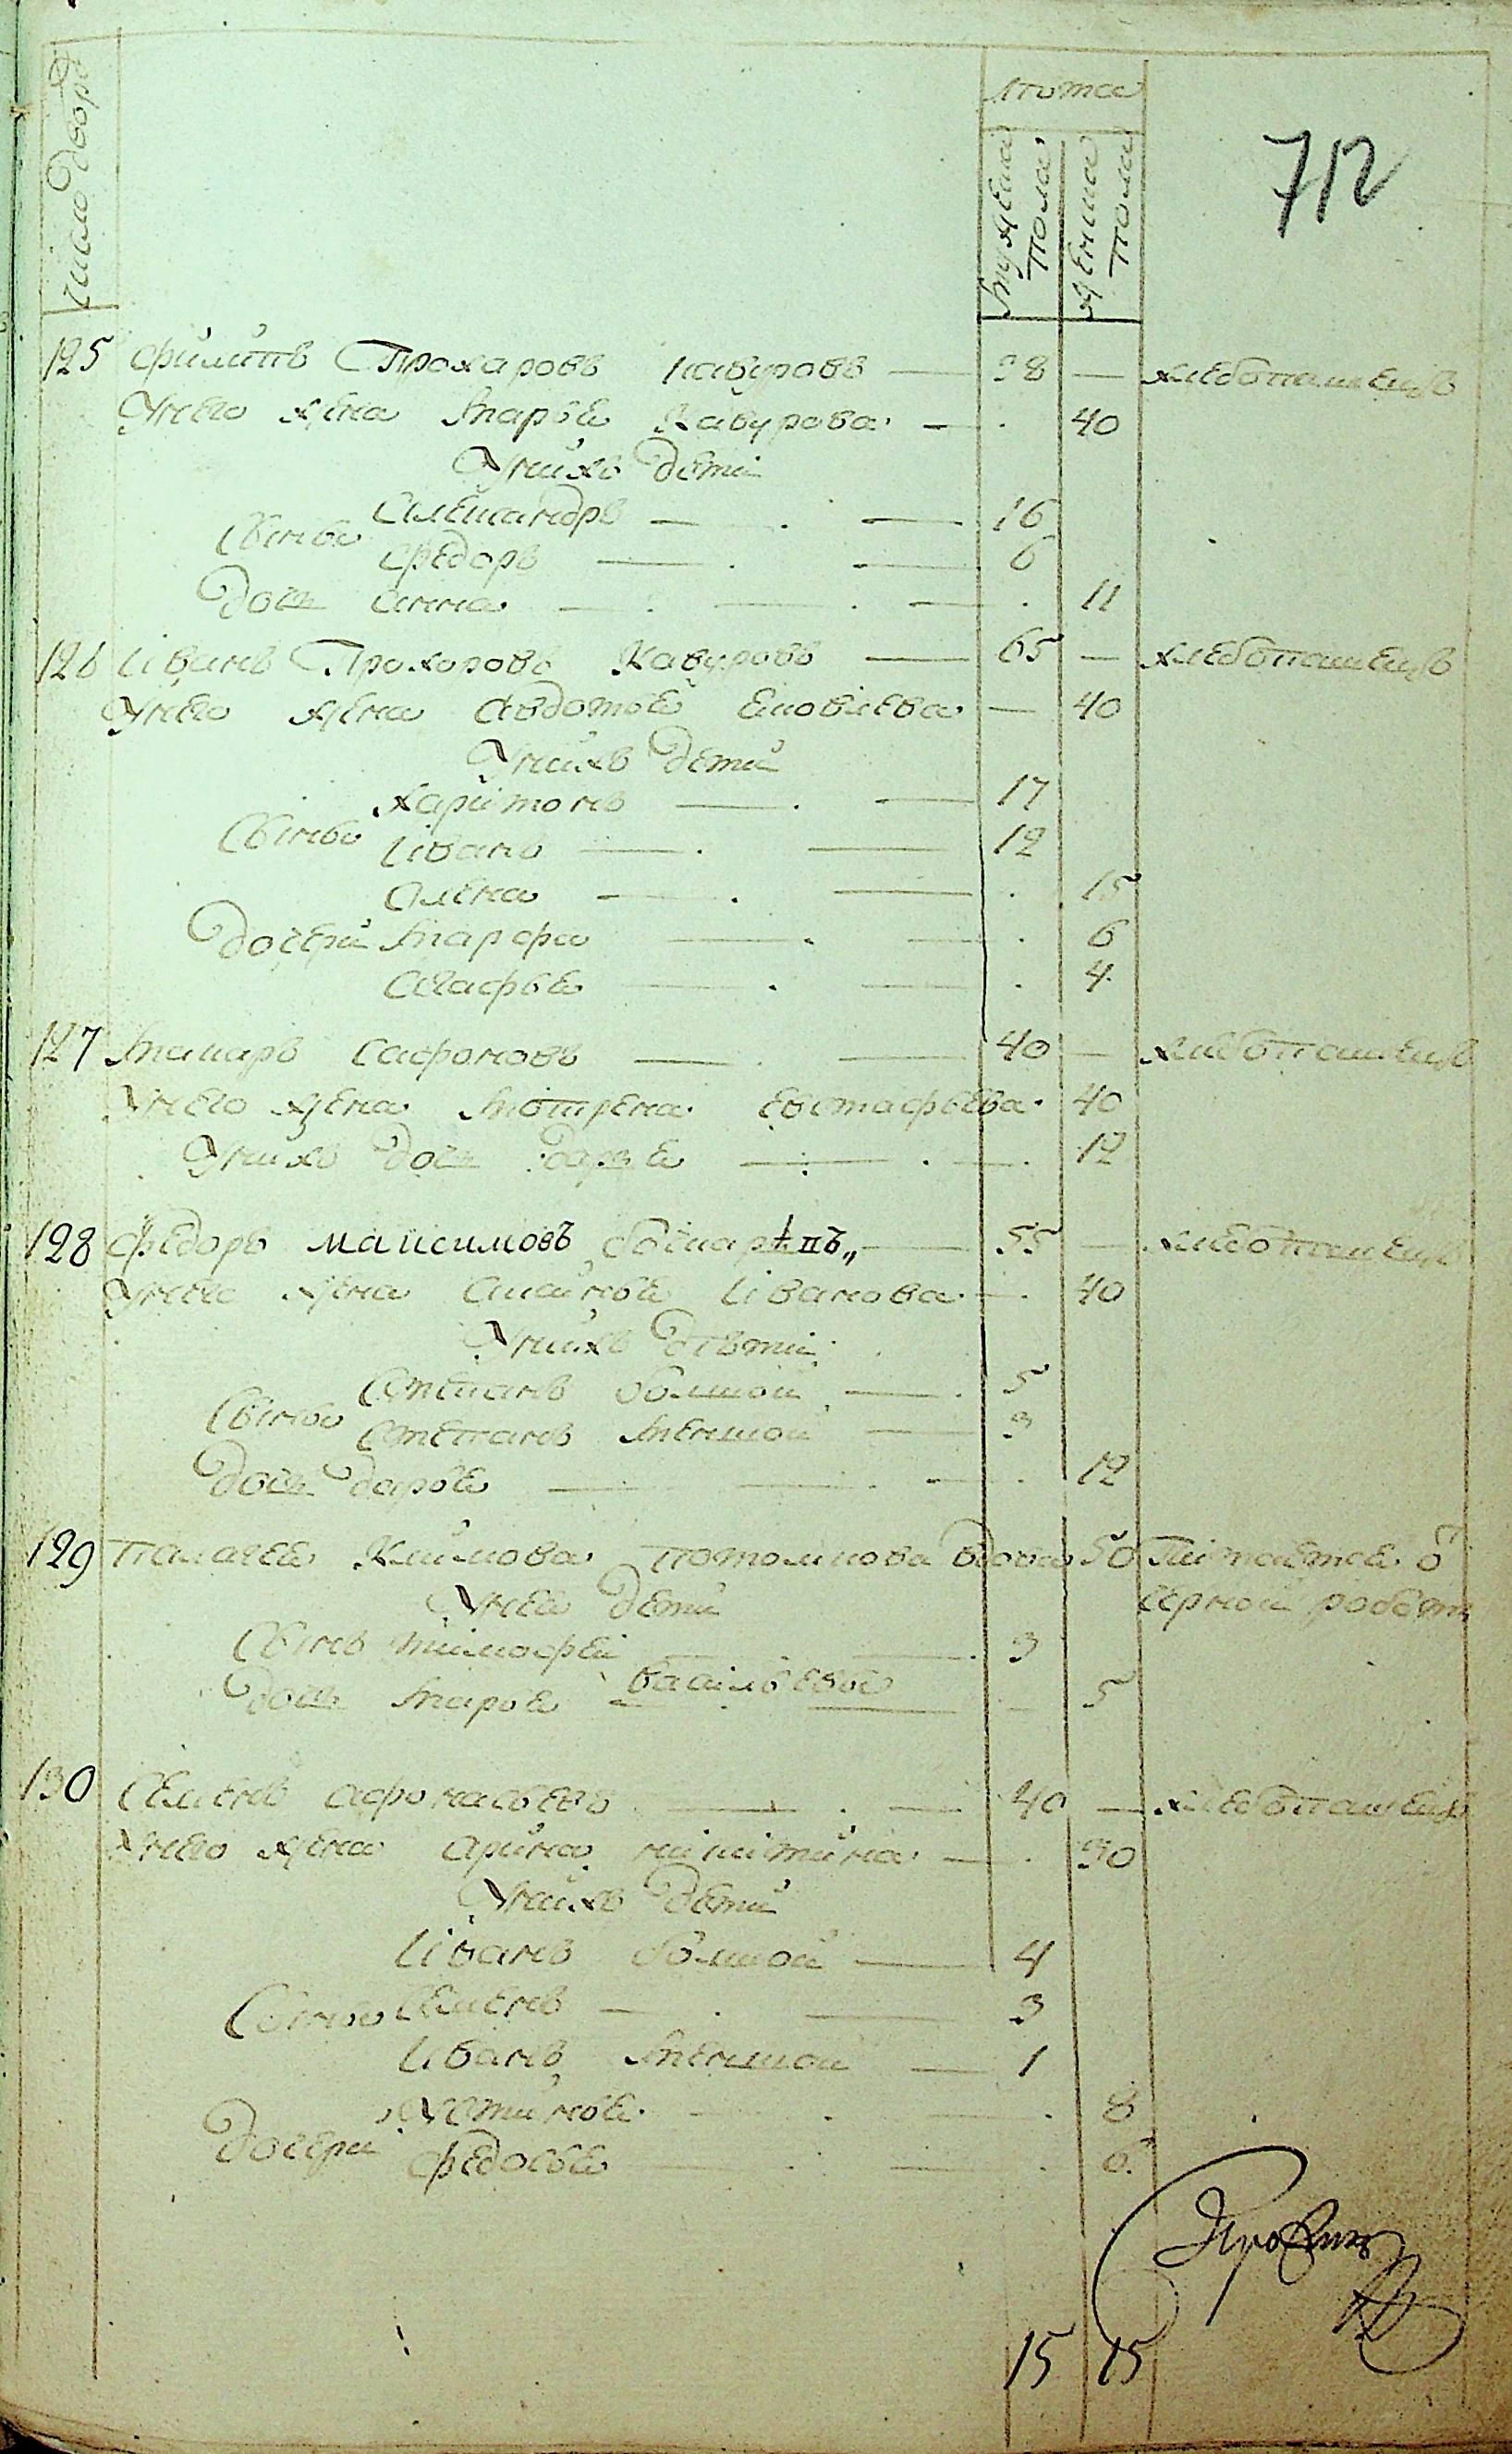 число дворъ
лѣта
мужеска пола
женска пола
712
125 Филипъ Прохаровъ Кавуровъ — 38 — хлебопашецъ
Унего жена Марья Кавурова — 40
Унихъ дети
Александръ — 16
Сынове
Федоръ — 6
Дочь Анна — 11
126 Иванъ Прохоровъ Кавуровъ — 65 — хлебопашецъ
Унего жена Авдотья — 40
Унихъ дети
Харитонъ — 17
Сынове
Иванъ — 12
Олена — 15
Дочери Марфа — 6
Агафья — 4
127 Макаръ Сафоновъ — 40 — хлебопашецъ
Унего жена Мотрена Евстафьева 40
Унихъ дочь Дарья — 12
128 Федоръ Максимовъ — 55 — хлебопашецъ
Унего жена Ивanова — 40
Унихъ дѣти
Степанъ болшой — 5
Сынове
Степанъ меншой — 3
Дочь Дарья — 12
129 Палагея Климова вдова 50 Питается ѿ
Унея дети черной работы
Сынъ Тимофей — 3
Дочь Марья Васильевы — 5
130 Семенъ Афонасьевъ — 40 — хлебопашецъ
Унего жена Арина Никитина — 30
Унихъ дети
Иванъ болшой — 4
Сынове Семенъ — 3
Иванъ меншой — 1
Устинья — 8
Дочери
Федосья — 6
15 15